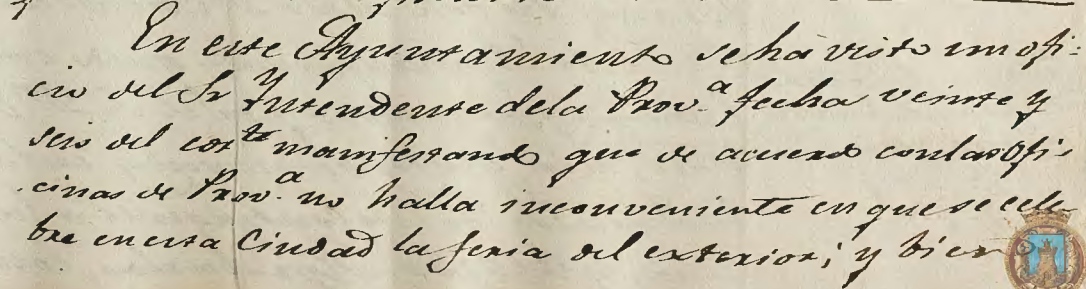 En este Ayuntamiento se há visto un ofi-
cio del Sr Yntendente dela Prov.ª fecha veinte y
seis del cor.te manifestando que de acuerdo conlas Ofi-
cinas de Prov.ª no halla inconveniente en que se cele-
bre en esta Ciudad la feria del exterior; y bien